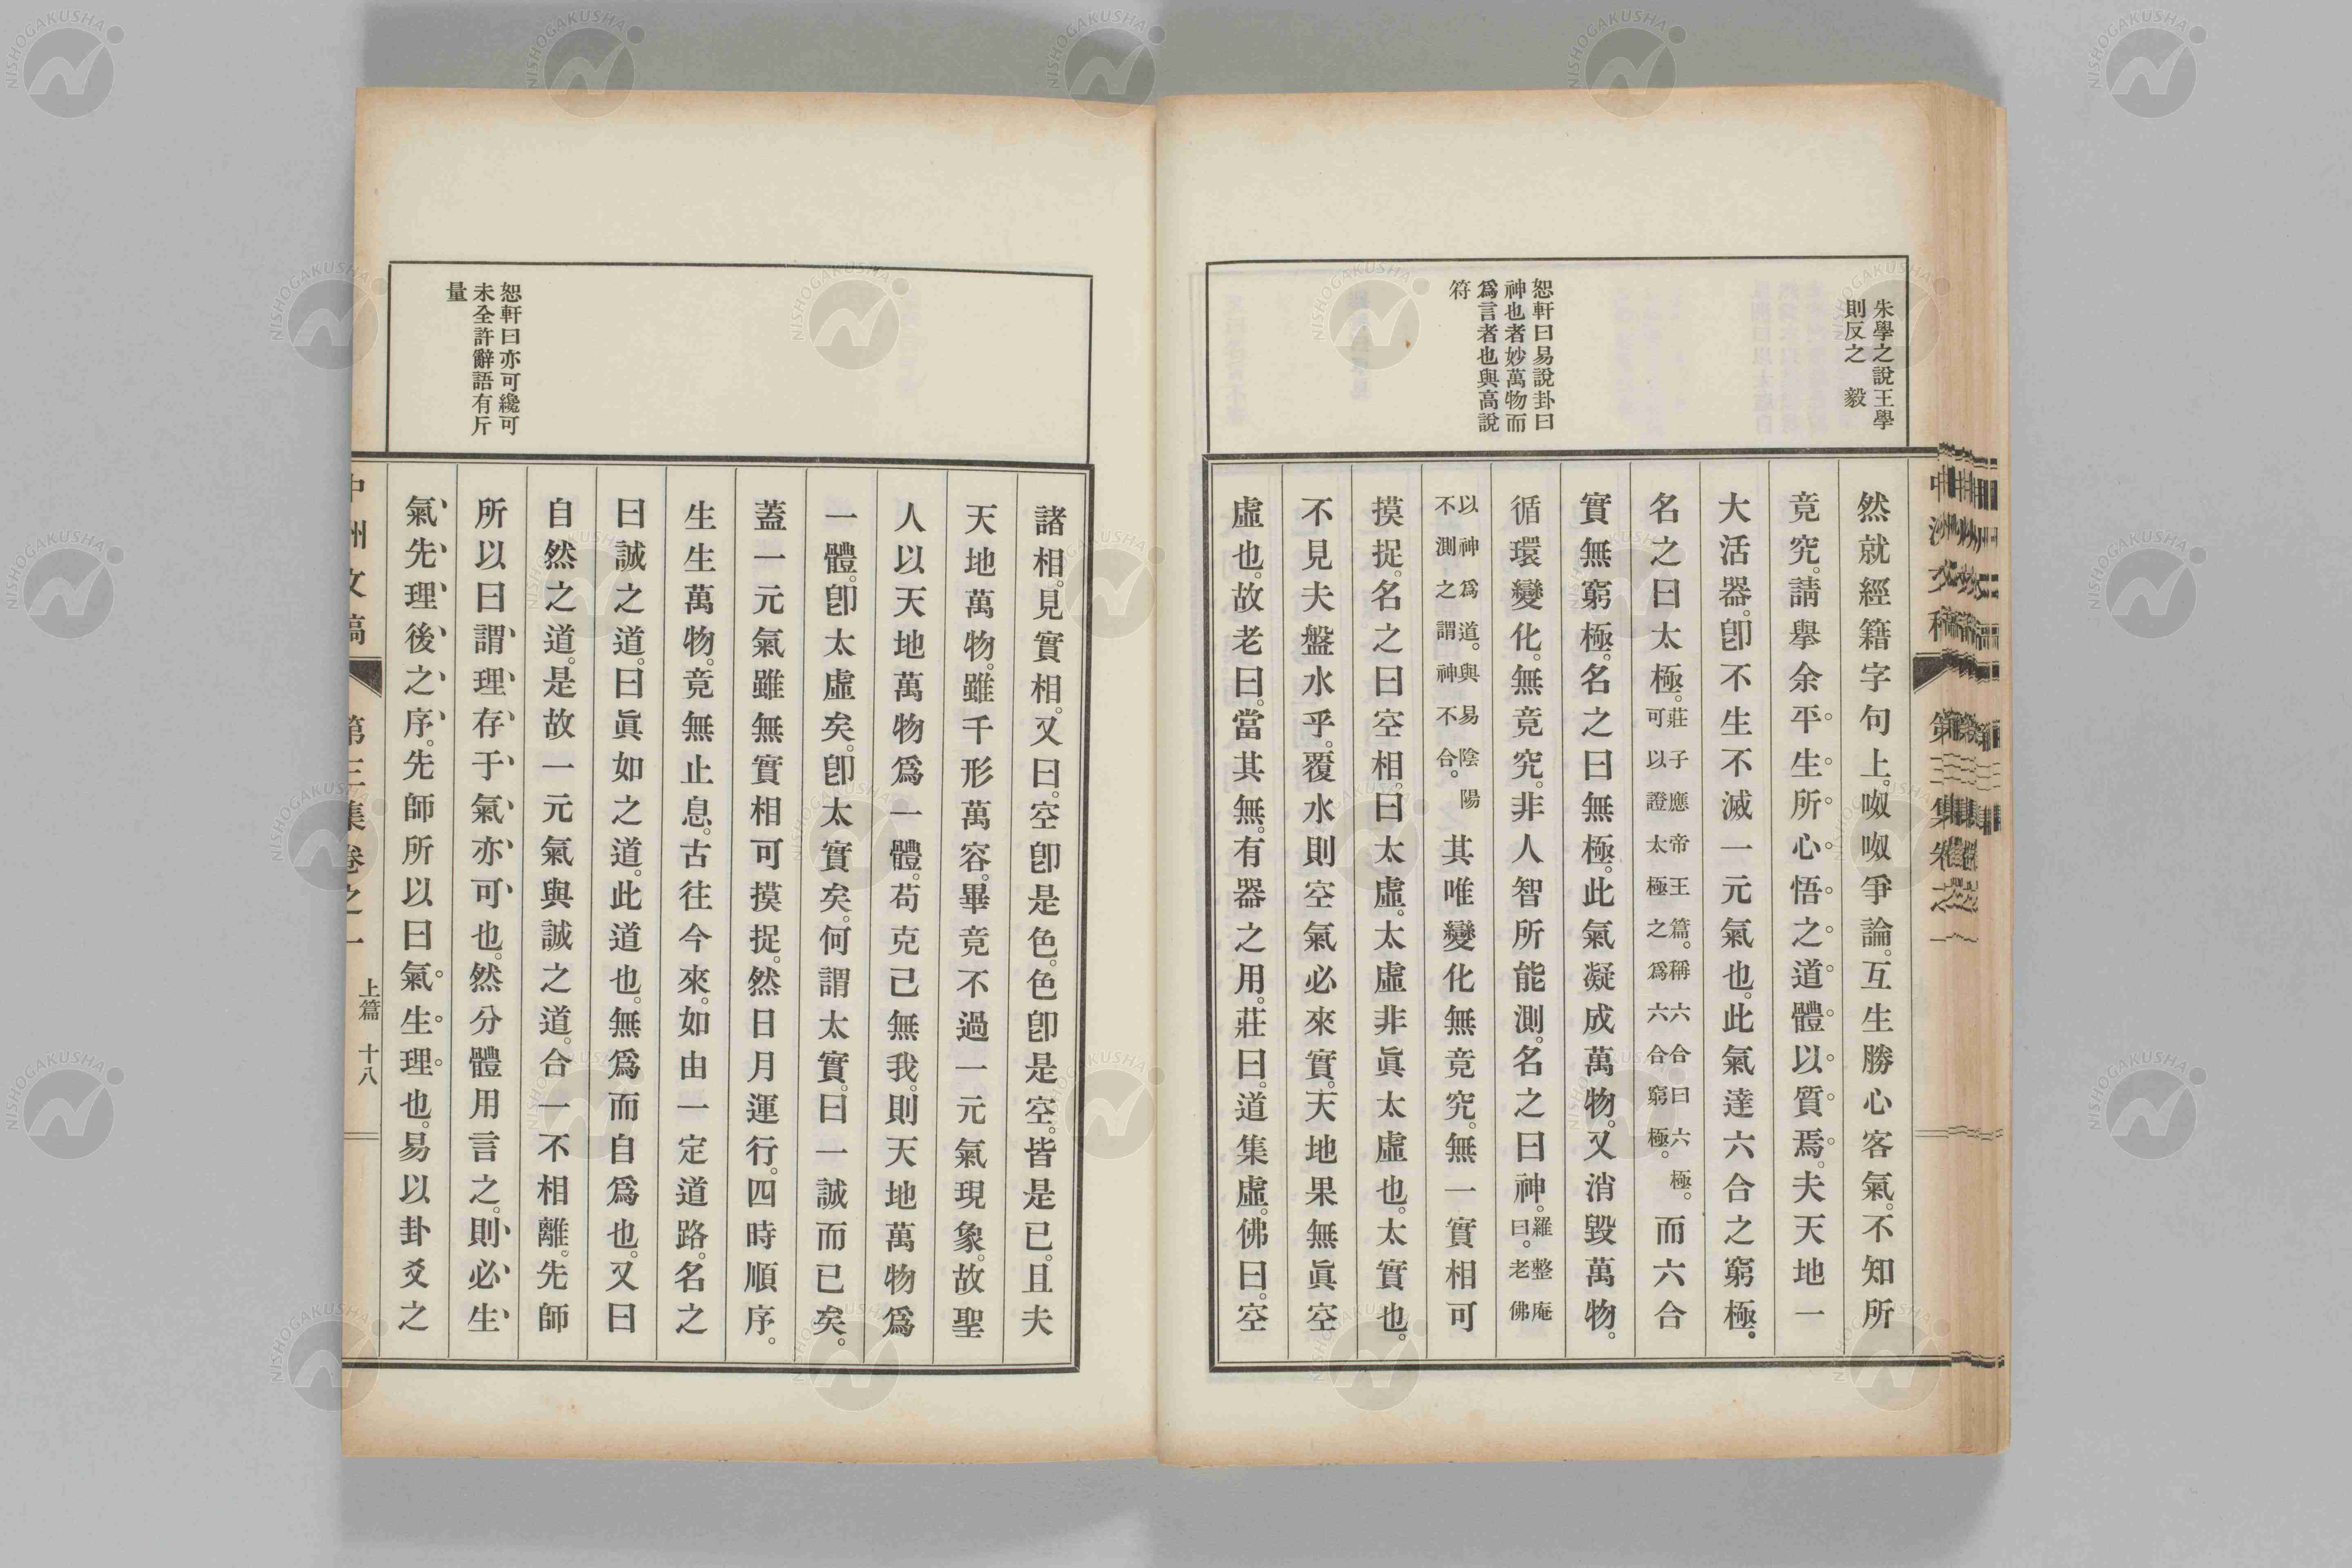 朱學之說王學
則反之　毅
恕軒曰易說卦曰
神也者妙萬物而
爲言者也與高說
符
然就經籍字句上。呶呶爭論。互生勝心客氣。不知所
竟究。請擧余平生所心悟之道體以質焉。夫天地一
大活器。卽不生不滅一元氣也。此氣達六合之窮極。
名之曰太極。莊子應帝王篇。稱六合曰六極。可以證太極之爲六合窮極。而六合
實無窮極。名之曰無極。此氣凝成萬物。又消毀萬物。
循環變化。無竟究。非人智所能測。名之曰神。羅整庵曰。老佛
以神爲道。與易陰陽不測之謂神不合。其唯變化無竟究。無一實相可
摸捉。名之曰空相。曰太虛。太虛非眞太虛也。太實也。
不見夫盤水乎。覆水則空氣必來實。天地果無眞空
虛也。故老曰。當其無。有器之用。莊曰。道集虛。佛曰。空
恕軒曰亦可纔可
未全許辭語有斤
量
諸相。見實相。又曰。空卽是色。色卽是空。皆是已。且夫
天地萬物。雖千形萬容。畢竟不過一元氣現象。故聖
人以天地萬物爲一體。苟克己無我。則天地萬物爲
一體。卽太虛矣。卽太實矣。何謂太實。曰一誠而已矣。
蓋一元氣雖無實相可摸捉。然日月運行。四時順序。
生生萬物。竟無止息。古往今來。如由一定道路。名之
曰誠之道。曰眞如之道。此道也。無爲而自爲也。又曰
自然之道。是故一元氣與誠之道。合一不相離。先師
所以曰謂理存于氣亦可也。然分體用言之。則必生
氣先理後之序。先師所以曰氣生理也。易以卦爻之
中洲文稿　第三集卷之一　上篇　十八
NISHOGAKUSHA